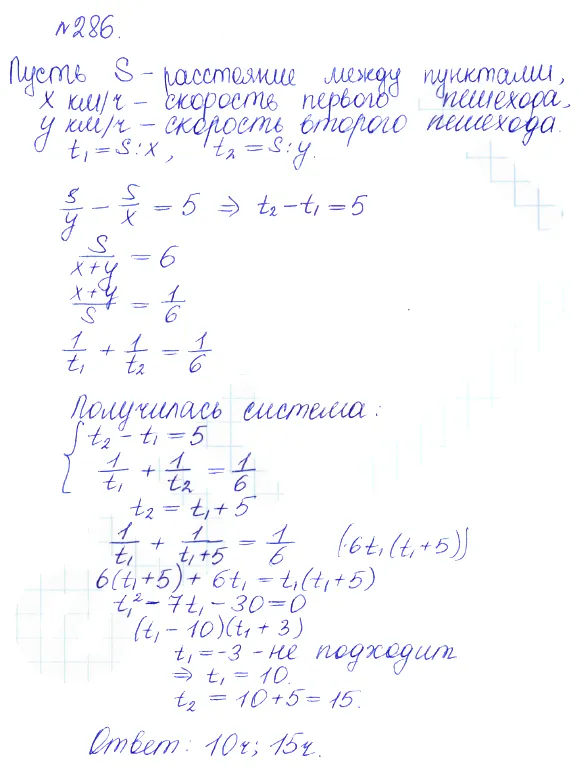 №286.
Пусть S – расстояние между пунктами,
x км/ч – скорость первого пешехода,
y км/ч – скорость второго пешехода.
t₁ = S : x, t₂ = S : y.
S/y – S/x = 5 ⇒ t₂ – t₁ = 5
S/(x+y) = 6
(x+y)/S = 1/6
1/t₁ + 1/t₂ = 1/6
Получилась система:
{ t₂ – t₁ = 5
1/t₁ + 1/t₂ = 1/6
t₂ = t₁ + 5
1/t₁ + 1/(t₁+5) = 1/6 (·6t₁(t₁+5))
6(t₁+5) + 6t₁ = t₁(t₁+5)
t₁² – 7t₁ – 30 = 0
(t₁ – 10)(t₁ + 3)
t₁ = –3 – не подходит
⇒ t₁ = 10.
t₂ = 10 + 5 = 15.
Ответ: 10ч; 15ч.